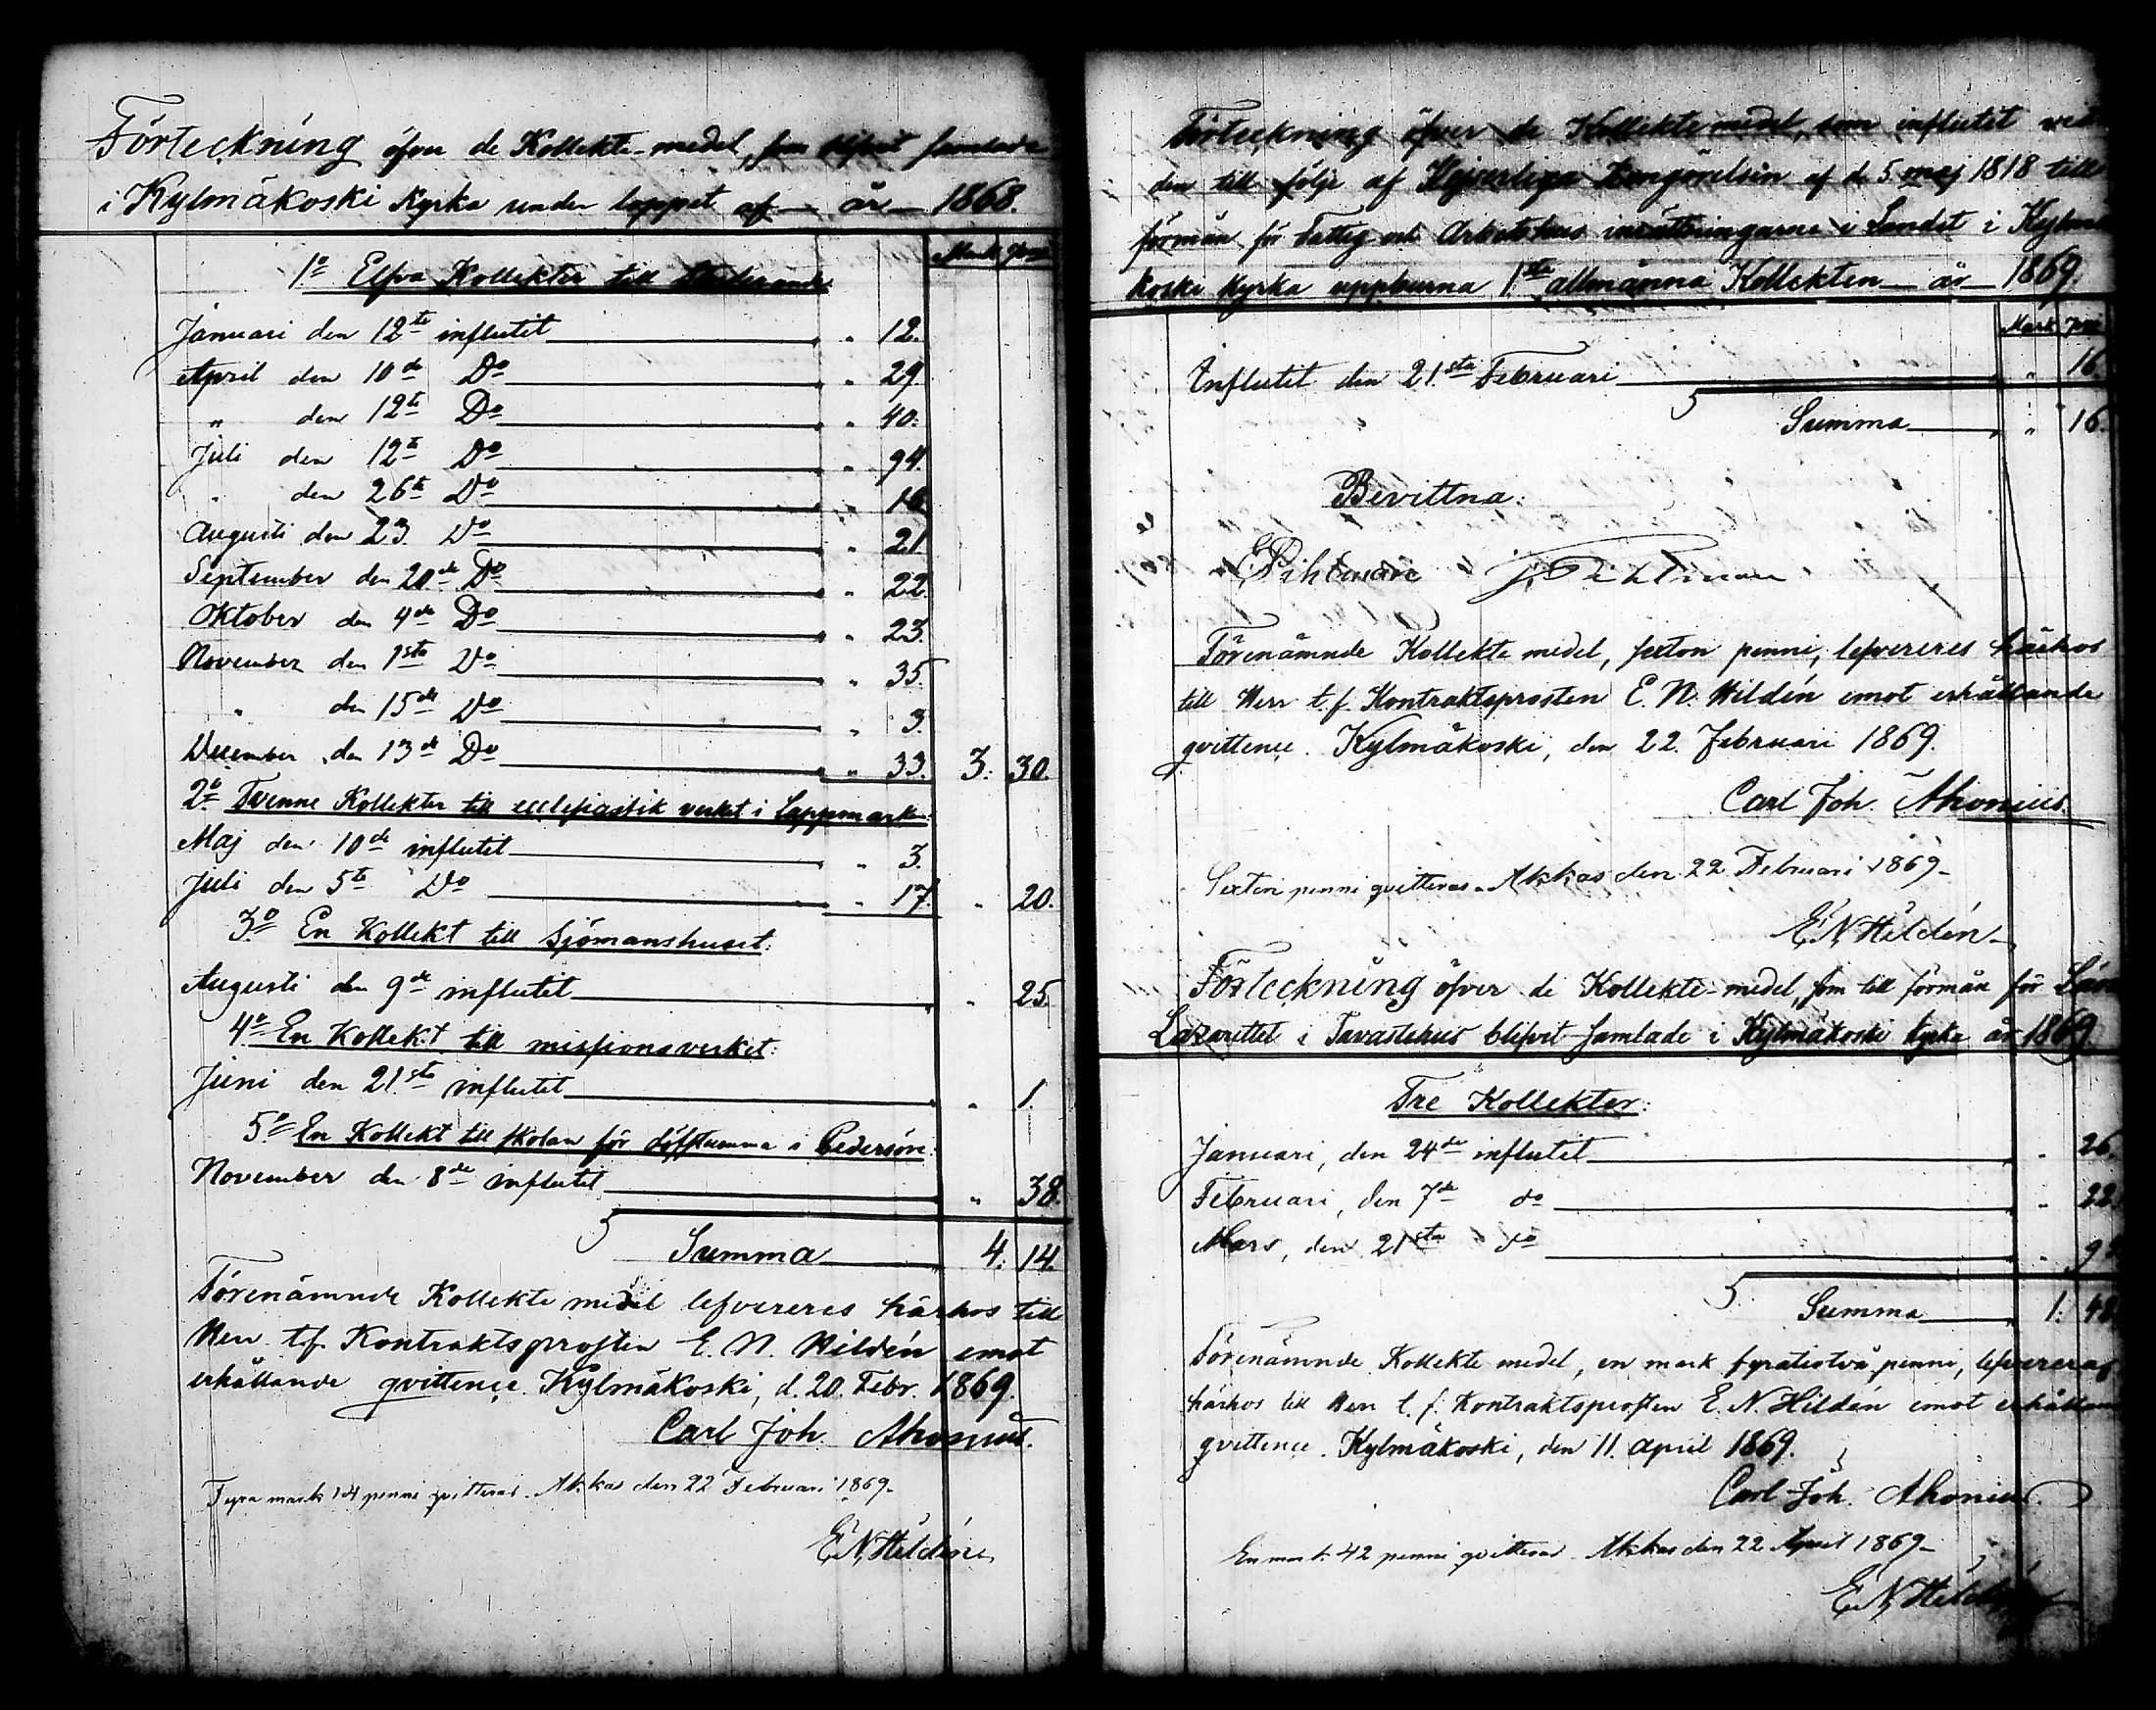 Förteckning öfver de Kollekte-medel, som blifvit samlade
i Kylmäkoski Kyrka under loppet af år 1868.
Mark Pni
1º Elfva Kollekter till
Januari den 12te influtit " 12.
April den 10de Dº " 29
" den 12te Dº " 40.
Juli den 12te Dº " 94.
" den 26te Dº " 16
Augusti den 23. Dº " 21
September den 20de Dº " 22.
Oktober den 4de Dº " 23.
November den 1sta Dº " 35.
" den 15de Dº " 3.
December den 13de Dº " 33. 3. 30.
2º Tvenne Kollekter till ecclesiastik verket i Lappmarken:
Maj den 10de influtit " 3.
Juli den 5te Dº " 17. " 20.
3º En Kollekt till Sjömanshuset:
Augusti den 9de influtit " 25.
4º En Kollekt till missionsverket:
Juni den 21sta influtit " 1.
5º En Kollekt till skolan för döfstumma i Pedersöre:
November den 8de influtit " 38.
Summa 4. 14.
Förenämnde Kollekte medel lefvereres härhos till
Herr t.f. Kontraktsprosten E. N. Hildén emot
erhållande qvittence. Kylmäkoski, d. 20. Febr. 1869.
Carl Joh. Ahonius.
Fyra mark 14 penni qvitteras. Akkas den 22 Februari 1869.
E N Hildén
Förteckning öfver de Kollekte medel, som influtit vid
den till följe af Kejserliga Kungörelsen af de 5 maj 1818 till
förmån för Fattig och Arbetshus inrättningarne i Landet i Kylmä
koski Kyrka uppburna 1sta allmänna Kollekten år 1869.
Mark Pni
Influtit den 21sta Februari " 16.
Summa " 16.
Bevittna:
E Pihlman J. Pihlman
Förenämnde Kollekte medel, sexton penni, lefvereres härhos
till Herr t.f. Kontraktsprosten E. N. Hildén emot erhållande
qvittence. Kylmäkoski, den 22. Februari 1869.
Carl Joh. Ahonius.
Sexton penni qvitteras. Akkas den 22 Februari 1869.
E N Hildén
Förteckning öfver de Kollekte-medel, som till förmån för Läns
Lazarettet i Tavastehus blifvit samlade i Kylmäkoski kyrka år 1869.
Tre Kollekter:
Januari, den 24de influtit " 26.
Februari, den 7de dº " 22.
Mars, den 21sta dº "
Summa 1.
Förenämnde Kollekte medel, en mark fyratiotvå penni, lefvereras
härhos till Herr t.f. Kontraktsprosten E. N. Hildén emot erhållande
qvittence. Kylmäkoski, den 11. April 1869.
Carl Joh. Ahonius.
En mark 42 penni qvitteras. Akkas den 22 April 1869.
E N Hildén